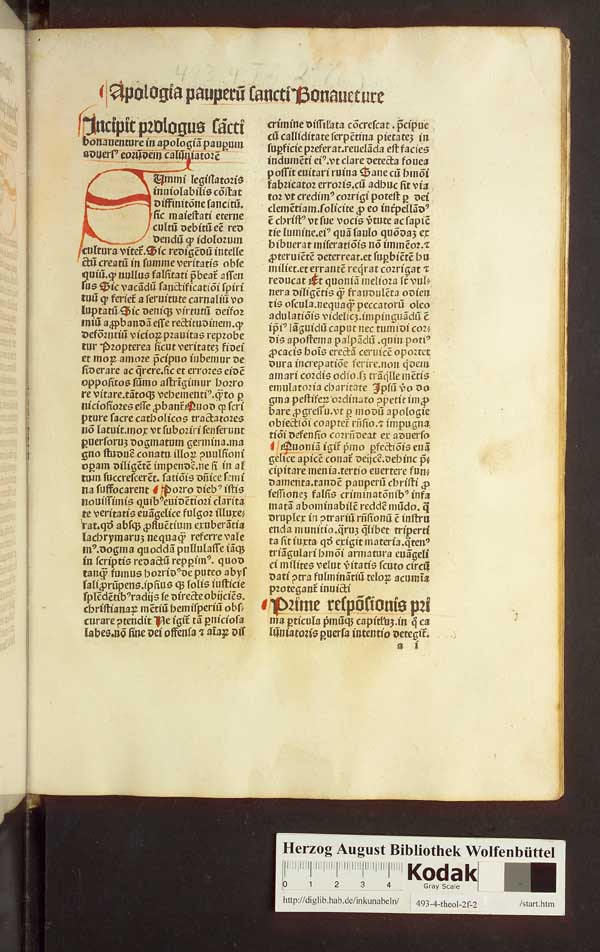 Apologia pauperū sancti Bonaueture
Incipit prologus sācti
bonauenture in apologiā pauperum
aduersꝰ eorūdem calūniatorē
Summi legislatoris
inuiolabilis cōstat
diffinitōne sancitū.
sic maiestati eterne
cultū debitū eē red
dendū ꝙ idolorum
cultura vitet᷒. Sic redigēdū intelle
ctū creatū in summe veritatis obse
quiū. ꝙ nullus falsitati p̄beat᷒ assen
sus Sic vacādū sanctificatiōi spiri
tuū ꝙ feriet᷒ a seruitute carnaliū vo
luptatū Sic deniqꝫ virtutū deifor
miū aprobandā esse rectitudinem. ꝙ
deformitiū vicioꝝ prauitas reprobe
tur Propterea sicut veritateꝫ fidei
et moꝝ amore p̄cipuo iubemur de
siderare ac q̄rere. sic et errores eidē
oppositos sūmo astrīgimur horro
re vitare. tātoqꝫ vehementiꝰ. q̄to ꝑ
niciosiores esse ꝓbant᷒ Quod qꝫ scri
pture sacre catholicos tractatores
nō latuit. mox vt suboriri senserunt
ꝑuersoruꝫ dogmatum germina. ma
gno studuē conatu illoꝝ ꝓuulsioni
oꝑam diligētē impendē. ne si in al
tum succrescerēt. satiōis dn̄ice semi
na suffocarent Porro diebꝰ istis
nouissimis quibꝰ euidētiori clarita
te veritatis euāgelice fulgor illuxe
rat. qd̄ absqꝫ ꝓfluētium exuberātia
lachrymaruꝫ nequaqꝫ referre vale
mꝰ. dogma quoddā pullulasse iāqꝫ
in scriptis redactū repꝑimꝰ. quod
tanqꝫ fumus horridꝰ de puteo abys
sali ꝓrūpens. ipsiusqꝫ solis iusticie
splēdētibꝰ radijs se directe obijciēs.
christianaꝝ mētiū hemisperiū obs
curare ꝓtendit Ne igit᷒ tā ꝑniciosa
labes. nō sine dei offensa ⁊ aīaꝝ dis
crimine dissīlata cōcrescat. p̄cipue
cū calliditate serpētina pietateꝫ in
suꝑficie preferat. reuelāda est facies
indumēti eiꝰ. vt clare detecta fouea
possit euitari ruina Sane cū hmōi
fabricator erroris. cū adhuc sit via
tor vt credimꝰ corrigi potest ꝑ dei
clemētiam. solicite ꝓ eo intꝑellādꝰ
ē christꝰ vt sue vocis v̄tute ac sapiē
tie lumine. eiꝰ quā saulo quōdaꝫ ex
hibuerat miseratiōis nō immēor. ⁊
ꝓteruiētē deterreat. et suꝑbiētē hu
miliet. et errantē reqꝛat corrigat ⁊
reducat Et quoniā meliora sē vul-
nera diligētis qꝫ fraudulēta odien
tis oscula. nequaqꝫ peccatorū oleo
adulatiōis videlicꝫ. impinguandū ē
ip̄iꝰ lāguidū caput nec tumidi cor-
dis apostema palpādū. quin potiꝰ
ꝓcacis hoīs erectā ceruicē oportet
dura increpatiōe ferire. non qdem
amari cordis odio. sꝫ trāqlle mētis
emulatoria charitate Ipsū v̄o do
gma pestifeꝝ ordinato ꝓpetit im ꝓ
bare ꝓgressu. vt ꝑ modū apologie
obiectiōi coaptet᷒ rn̄sio. ⁊ impugna
tiōi defensio corrn̄deat ex aduerso
Quoniā igit᷒ p̄mo ꝑfectiōis euā
gelice apicē conat᷒ deijcē. dehinc p̄-
cipitare menia. tertio euertere fun-
damenta. tandē pauperū christi ꝓ
fessioneꝫ falsis criminatōnibꝰ infa
matā abominabilē reddē mūdo. q̄
druplex in ꝯtrariū rn̄sionū ē instru
enda munitio. qruꝫ qlibet triperti
ta sit iuxta qd̄ exigit materia. qtenꝰ
triāgulari hmōi armatura euāgeli
ci milites velut v̄itatis scuto circū
dati ꝯtra fulminātiū teloꝝ acumīa
protegant᷒ inuicti
Prime respōsionis pri
ma ꝑticula p̄muꝫqꝫ capitluꝫ. in q̄ ca
lūniatoris ꝑuersa intentio detegit᷒.
a i
Herzog August Bibliothek Wolfenbüttel
0 1 2 3 4
Kodak
Gray Scale
http://diglib.hab.de/inkunabeln/ 493-4-theol-2f-2 /start.htm